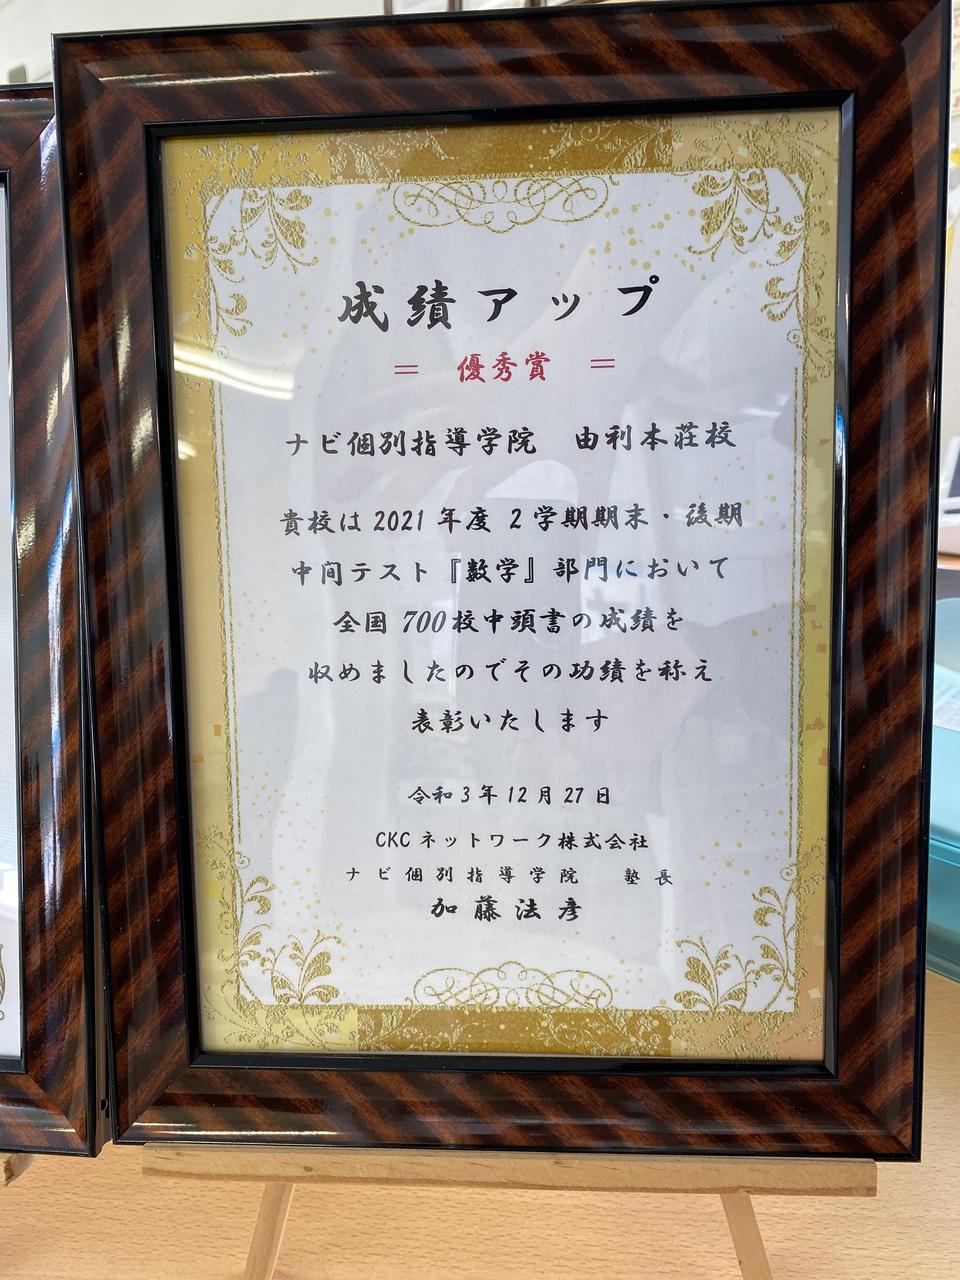 成績アップ
＝ 優秀賞 ＝
ナビ個別指導学院　由利本荘校
貴校は2021年度 2学期期末・後期
中間テスト『数学』部門において
全国700校中頭書の成績を
収めましたのでその功績を称え
表彰いたします
令和3年12月27日
CKCネットワーク株式会社
ナビ個別指導学院　塾長
加藤法彦